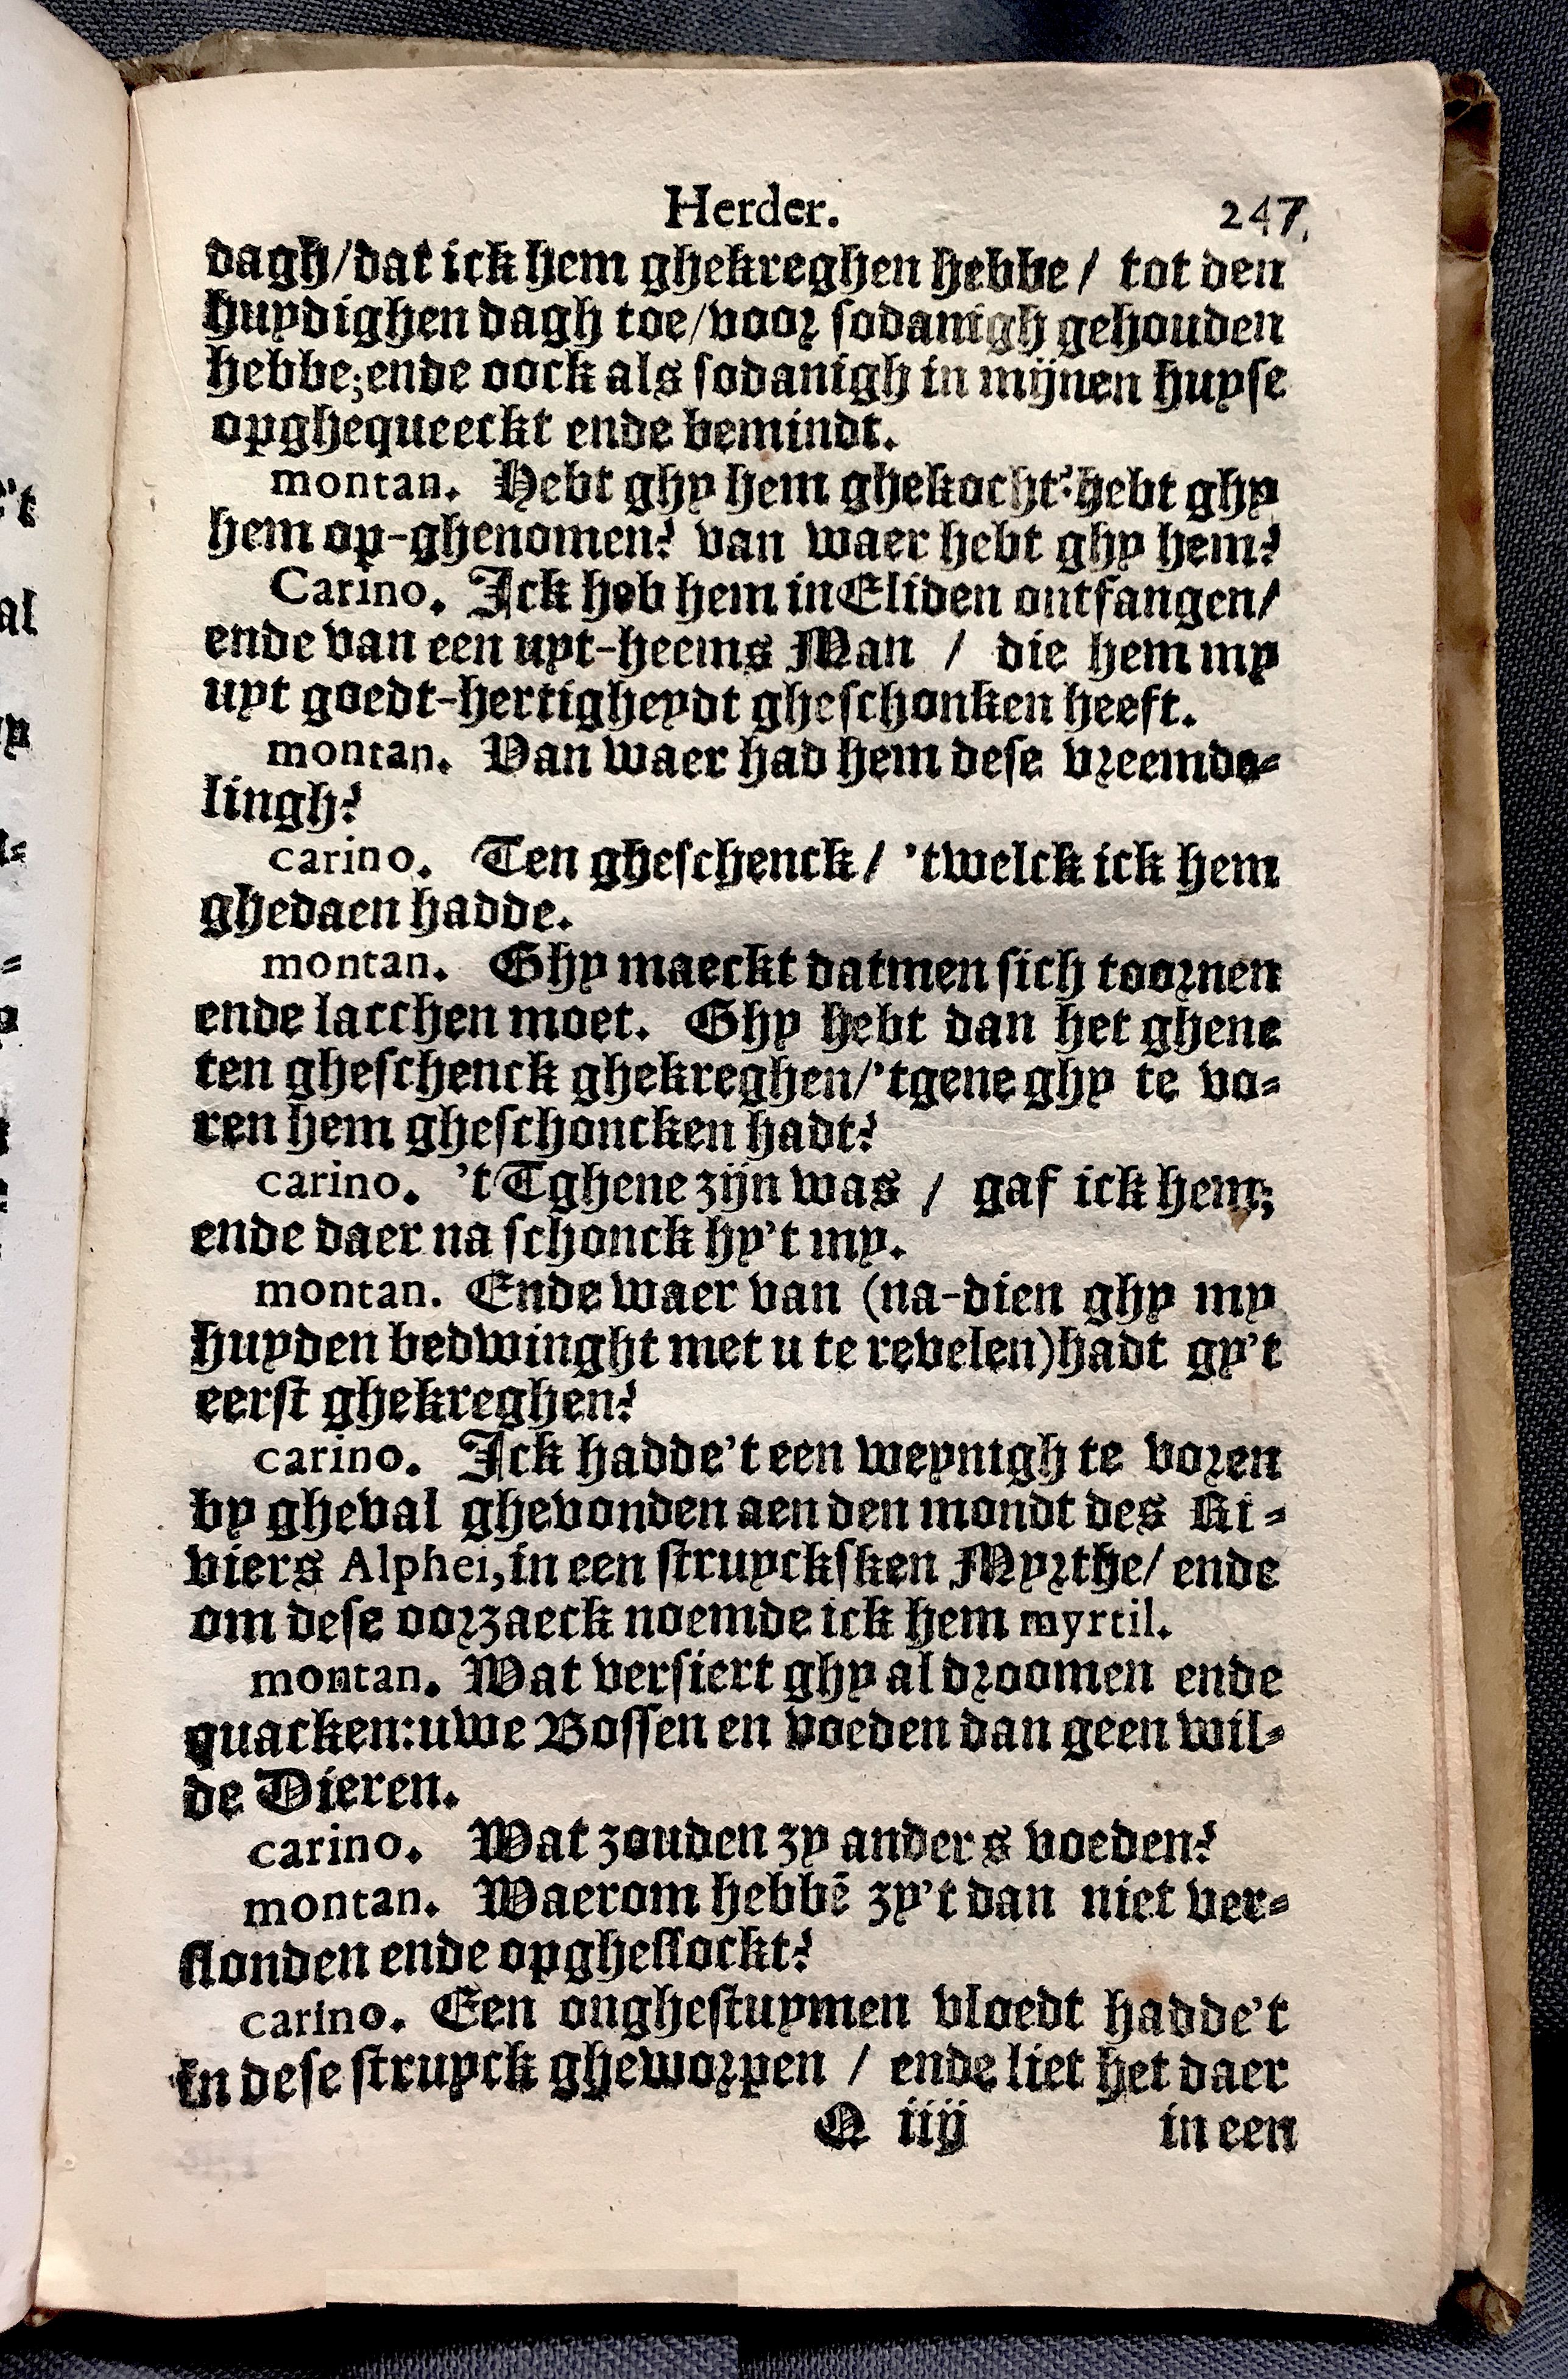 Herder. 247.
dagh/dat ick hem ghekreghen hebbe / tot den
huydighen dagh toe/voor sodanigh gehouden
hebbe;ende oock als sodanigh in mijnen huyse
opghequeeckt ende bemindt.
montan. Hebt ghy hem ghekocht? hebt ghy
hem op-ghenomen? van waer hebt ghy hem?
Carino. Ick heb hem in Eliden ontfangen/
ende van een uyt-heems Man / die hem my
uyt goedt-hertigheydt gheschonken heeft.
montan. Van waer had hem dese vreemde-
lingh?
carino. Ten gheschenck / 'twelck ick hem
ghedaen hadde.
montan. Ghy maeckt datmen sich toornen
ende lacchen moet. Ghy hebt dan het ghene
ten gheschenck ghekreghen/'tgene ghy te vo-
ren hem gheschoncken hadt?
carino. 't Tghene zijn was / gaf ick hem;
ende daer na schonck hy't my.
montan. Ende waer van (na-dien ghy my
huyden bedwinght met u te revelen)hadt gy't
eerst ghekreghen?
carino. Ick hadde't een weynigh te voren
by gheval ghevonden aen den mondt des Ri-
viers Alphei, in een struycksken Myrthe/ ende
om dese oorzaeck noemde ick hem myrtil.
montan. Wat versiert ghy al droomen ende
quacken:uwe Bossen en voeden dan geen wil-
de Dieren.
carino. Wat zouden zy anders voeden?
montan. Waerom hebbē zy't dan niet ver-
slonden ende opgheslockt?
carino. Een onghestuymen vloedt hadde't
in dese struyck gheworpen / ende liet het daer
Q iiij in een